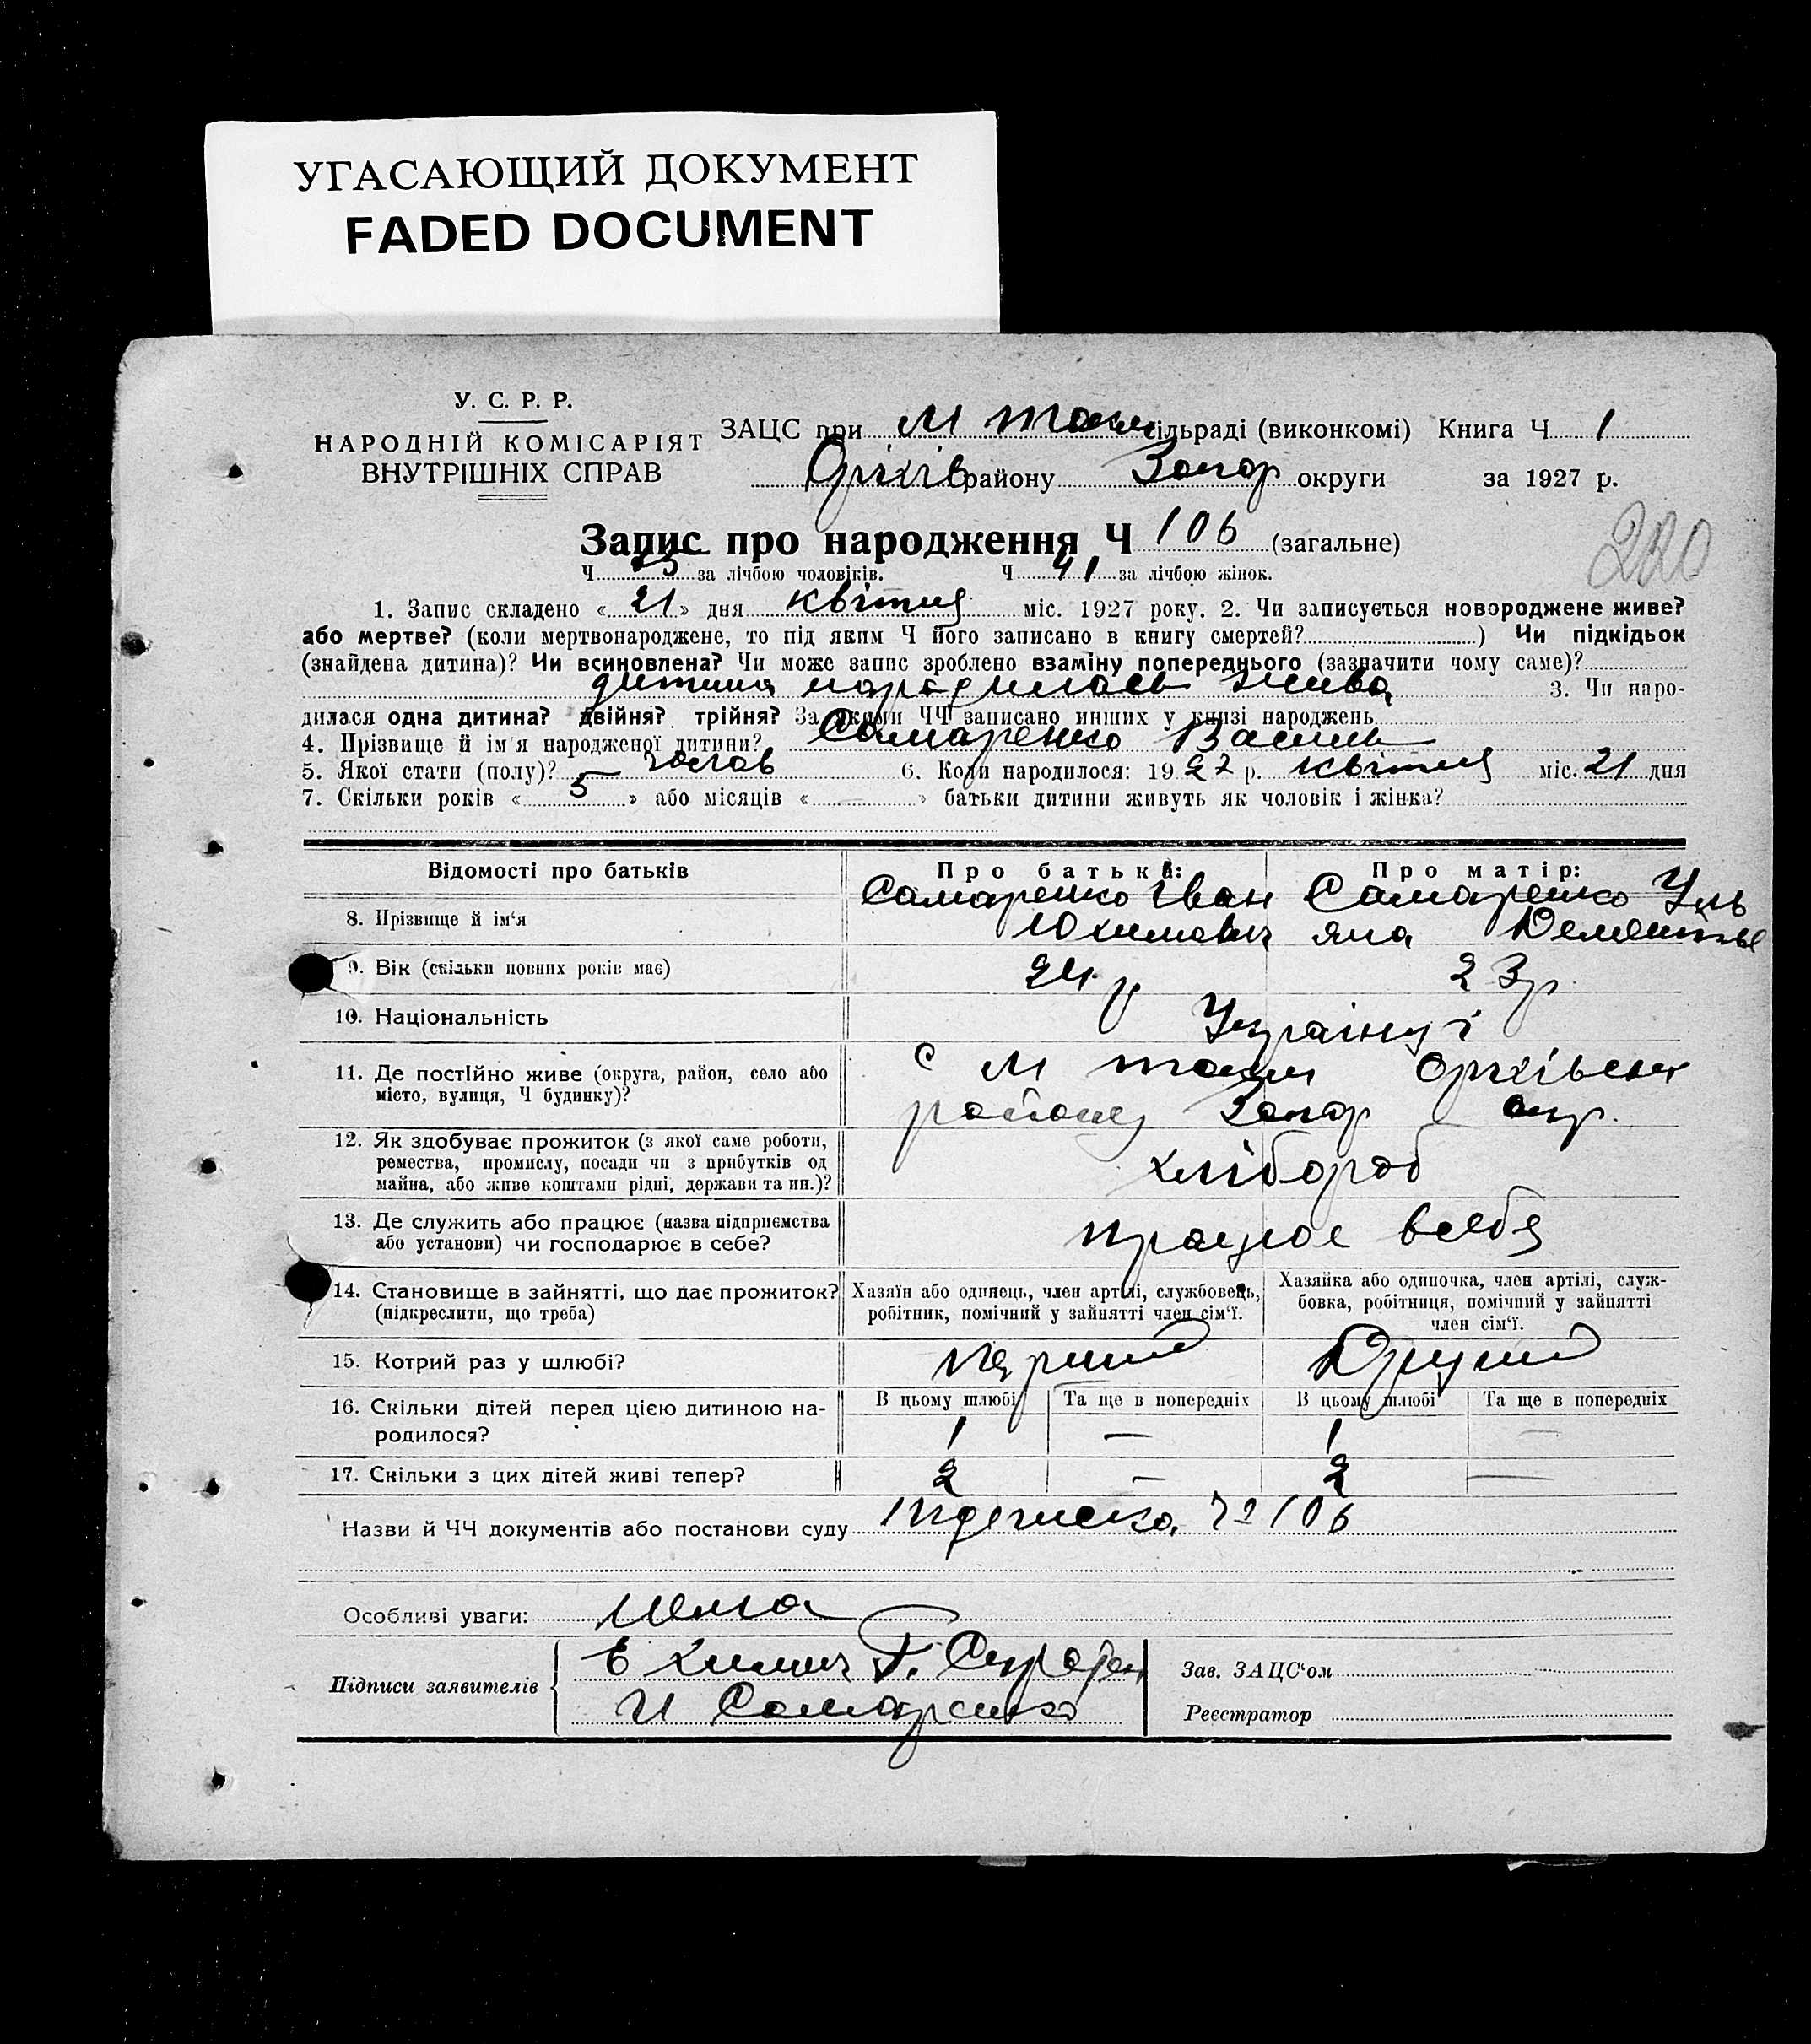 УГАСАЮЩИЙ ДОКУМЕНТ
FADED DOCUMENT
У. С. Р. Р.
НАРОДНІЙ КОМІСАРІЯТ
ВНУТРІШНІХ СПРАВ
ЗАЦС при М Ток сільраді (виконкомі) Книга Ч 1
Оріхів району Запор округи за 1927 р.
220
Запис про народження Ч 106 (загальне)
Ч за лічбою чоловіків. Ч 41 за лічбою жінок.
1. Запис складено « 21 » дня квітня міс. 1927 року. 2. Чи записується новороджене живе?
або мертве? (коли мертвонароджене, то під яким Ч його записано в книгу смертей?) Чи підкідьок
(знайдена дитина)? Чи всиновлена? Чи може запис зроблено взаміну попереднього (зазначити чому саме)?
дитина народилась жива 3. Чи наро-
дилася одна дитина? двійня? трійня? За якими ЧЧ записано инших у книзі народжень
4. Прізвище й ім'я народженої дитини? Самаренко Василь
5. Якої стати (полу)? чолов 6. Коли народилося: 1927 р. квітня міс. 21 дня
7. Скільки років « 5 » або місяців « — » батьки дитини живуть як чоловік і жінка?
Відомості про батьків Про батька: Про матір:
8. Прізвище й ім'я Самаренко Іван Самаренко Уль
Юхимович яна Дементье
9. Вік (скільки повних років має) 24 р 23 р.
10. Національність Українці
11. Де постійно живе (округа, район, село або
місто, вулиця, Ч будинку)? с М Ток Оріхівськ
району Запор окр.
12. Як здобуває прожиток (з якої саме роботи,
ремества, промислу, посади чи з прибутків од
майна, або живе коштами рідні, держави та ин.)? хлібороб
13. Де служить або працює (назва підприємства
або установи) чи господарює в себе? працює в себя
14. Становище в зайнятті, що дає прожиток?
(підкреслити, що треба)
Хазяїн або одинець, член артілі, службовець,
робітник, помічний у зайнятті член сім'ї.
Хазяйка або одиночка, член артілі, служ-
бовка, робітниця, помічний у зайнятті
член сім'ї.
15. Котрий раз у шлюбі? Перший Другий
16. Скільки дітей перед цією дитиною на-
родилося?
В цьому шлюбі Та ще в попередніх В цьому шлюбі Та ще в попередніх
1 — 1 —
17. Скільки з цих дітей живі тепер? 2 — 2 —
Назви й ЧЧ документів або постанови суду Підписка № 106
Особливі уваги: нема
Підписи заявителів
И Самаренко
Зав. ЗАЦС'ом
Реєстратор